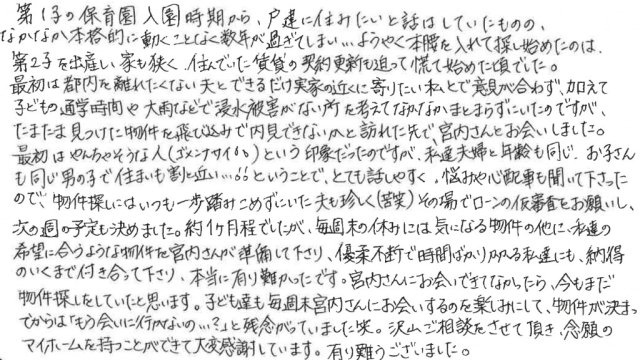 第1子の保育園入園時期から、戸建に住みたいと話はしていたものの、
なかなか本格的に動くことなく数年が過ぎてしまい…ようやく本腰を入れて探し始めたのは、
第2子を出産し、家も狭く、住んでいた賃貸の契約更新も迫って慌て始めた頃でした。
最初は都内を離れたくない夫とできるだけ実家の近くに寄りたい私とで意見が合わず、加えて
子どもの通学時間や大雨などで浸水被害がない所を考えてなかなかまとまらずにいたのですが、
たまたま見つけた物件を飛び込みで内見できないかと訪れた先で、宮内さんとお会いしました。
最初はやんちゃそうな人(ゴメンナサイ66)という印象だったのですが、私達夫婦と年齢も同じ、お子さん
も同じ男の子で住まいも割と近い…!!ということで、とても話しやすく、悩みや心配事も聞いて下さった
ので、物件探しにはいつも一歩踏みこめずにいた夫も珍しく(苦笑)その場でローンの仮審査をお願いし、
次の週の予定も決めました。約1ヶ月程でしたが、毎週末の休みには気になる物件の他に、私達の
希望に合うような物件を宮内さんが準備して下り、優柔不断で時間ばかりかかる私達にも、納得
のいくまで付き合って下り、本当に有り難かったです。宮内さんにお会いできてなかったら、今もまだ
物件探しをしていたと思います。子ども達も毎週末宮内さんにお会いするのを楽しみにして、物件が決まっ
てからは「もう会いに行かないの…?」と残念がっていました笑。沢山ご相談をさせて頂き、念願の
マイホームを持つことができて大変感謝しています。有り難うございました。